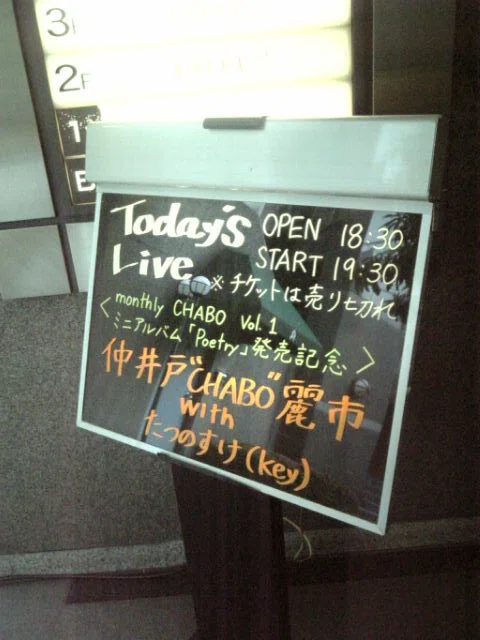 3
2F
1
B
Today's OPEN 18:30
Live START 19:30
※チケットは売り切れ
〈monthly CHABO Vol.1
ミニアルバム「Poetry」発売記念〉
仲井戸"CHABO"麗市
with
たつのすけ(key)